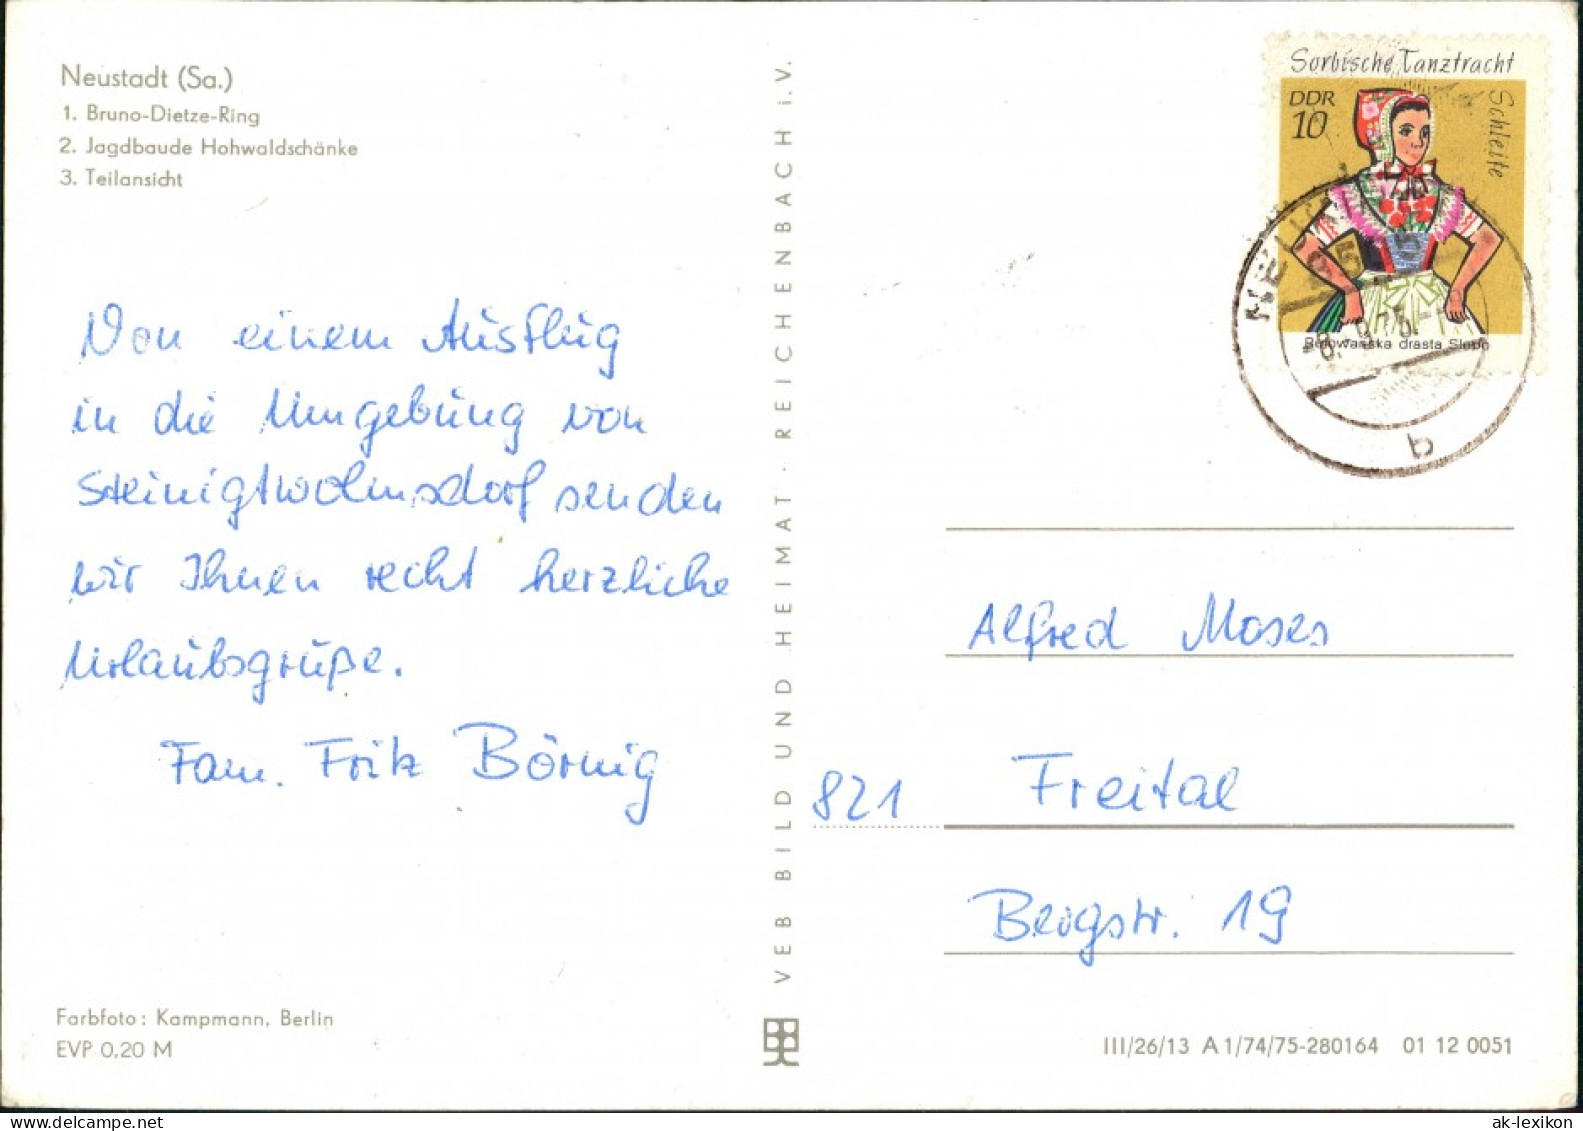 Neustadt (Sa.)
1. Bruno-Dietze-Ring
2. Jagdbaude Hohwaldschänke
3. Teilansicht
Von einem Ausflug
in die Umgebung von
Steinigtwolmsdorf senden
wir Ihnen recht herzliche
Urlaubsgrüße.
Fam. Fritz Börnig
Farbfoto: Kampmann, Berlin
EVP 0,20 M
VEB BILD UND HEIMAT · REICHENBACH i.V.
Sorbische Tanztracht
Schleife
DDR
10
drasta Slepo
b
Alfred Moses
821 Freital
Bergstr. 19
III/26/13 A 1/74/75-280164 01 12 0051
ak-lexikon